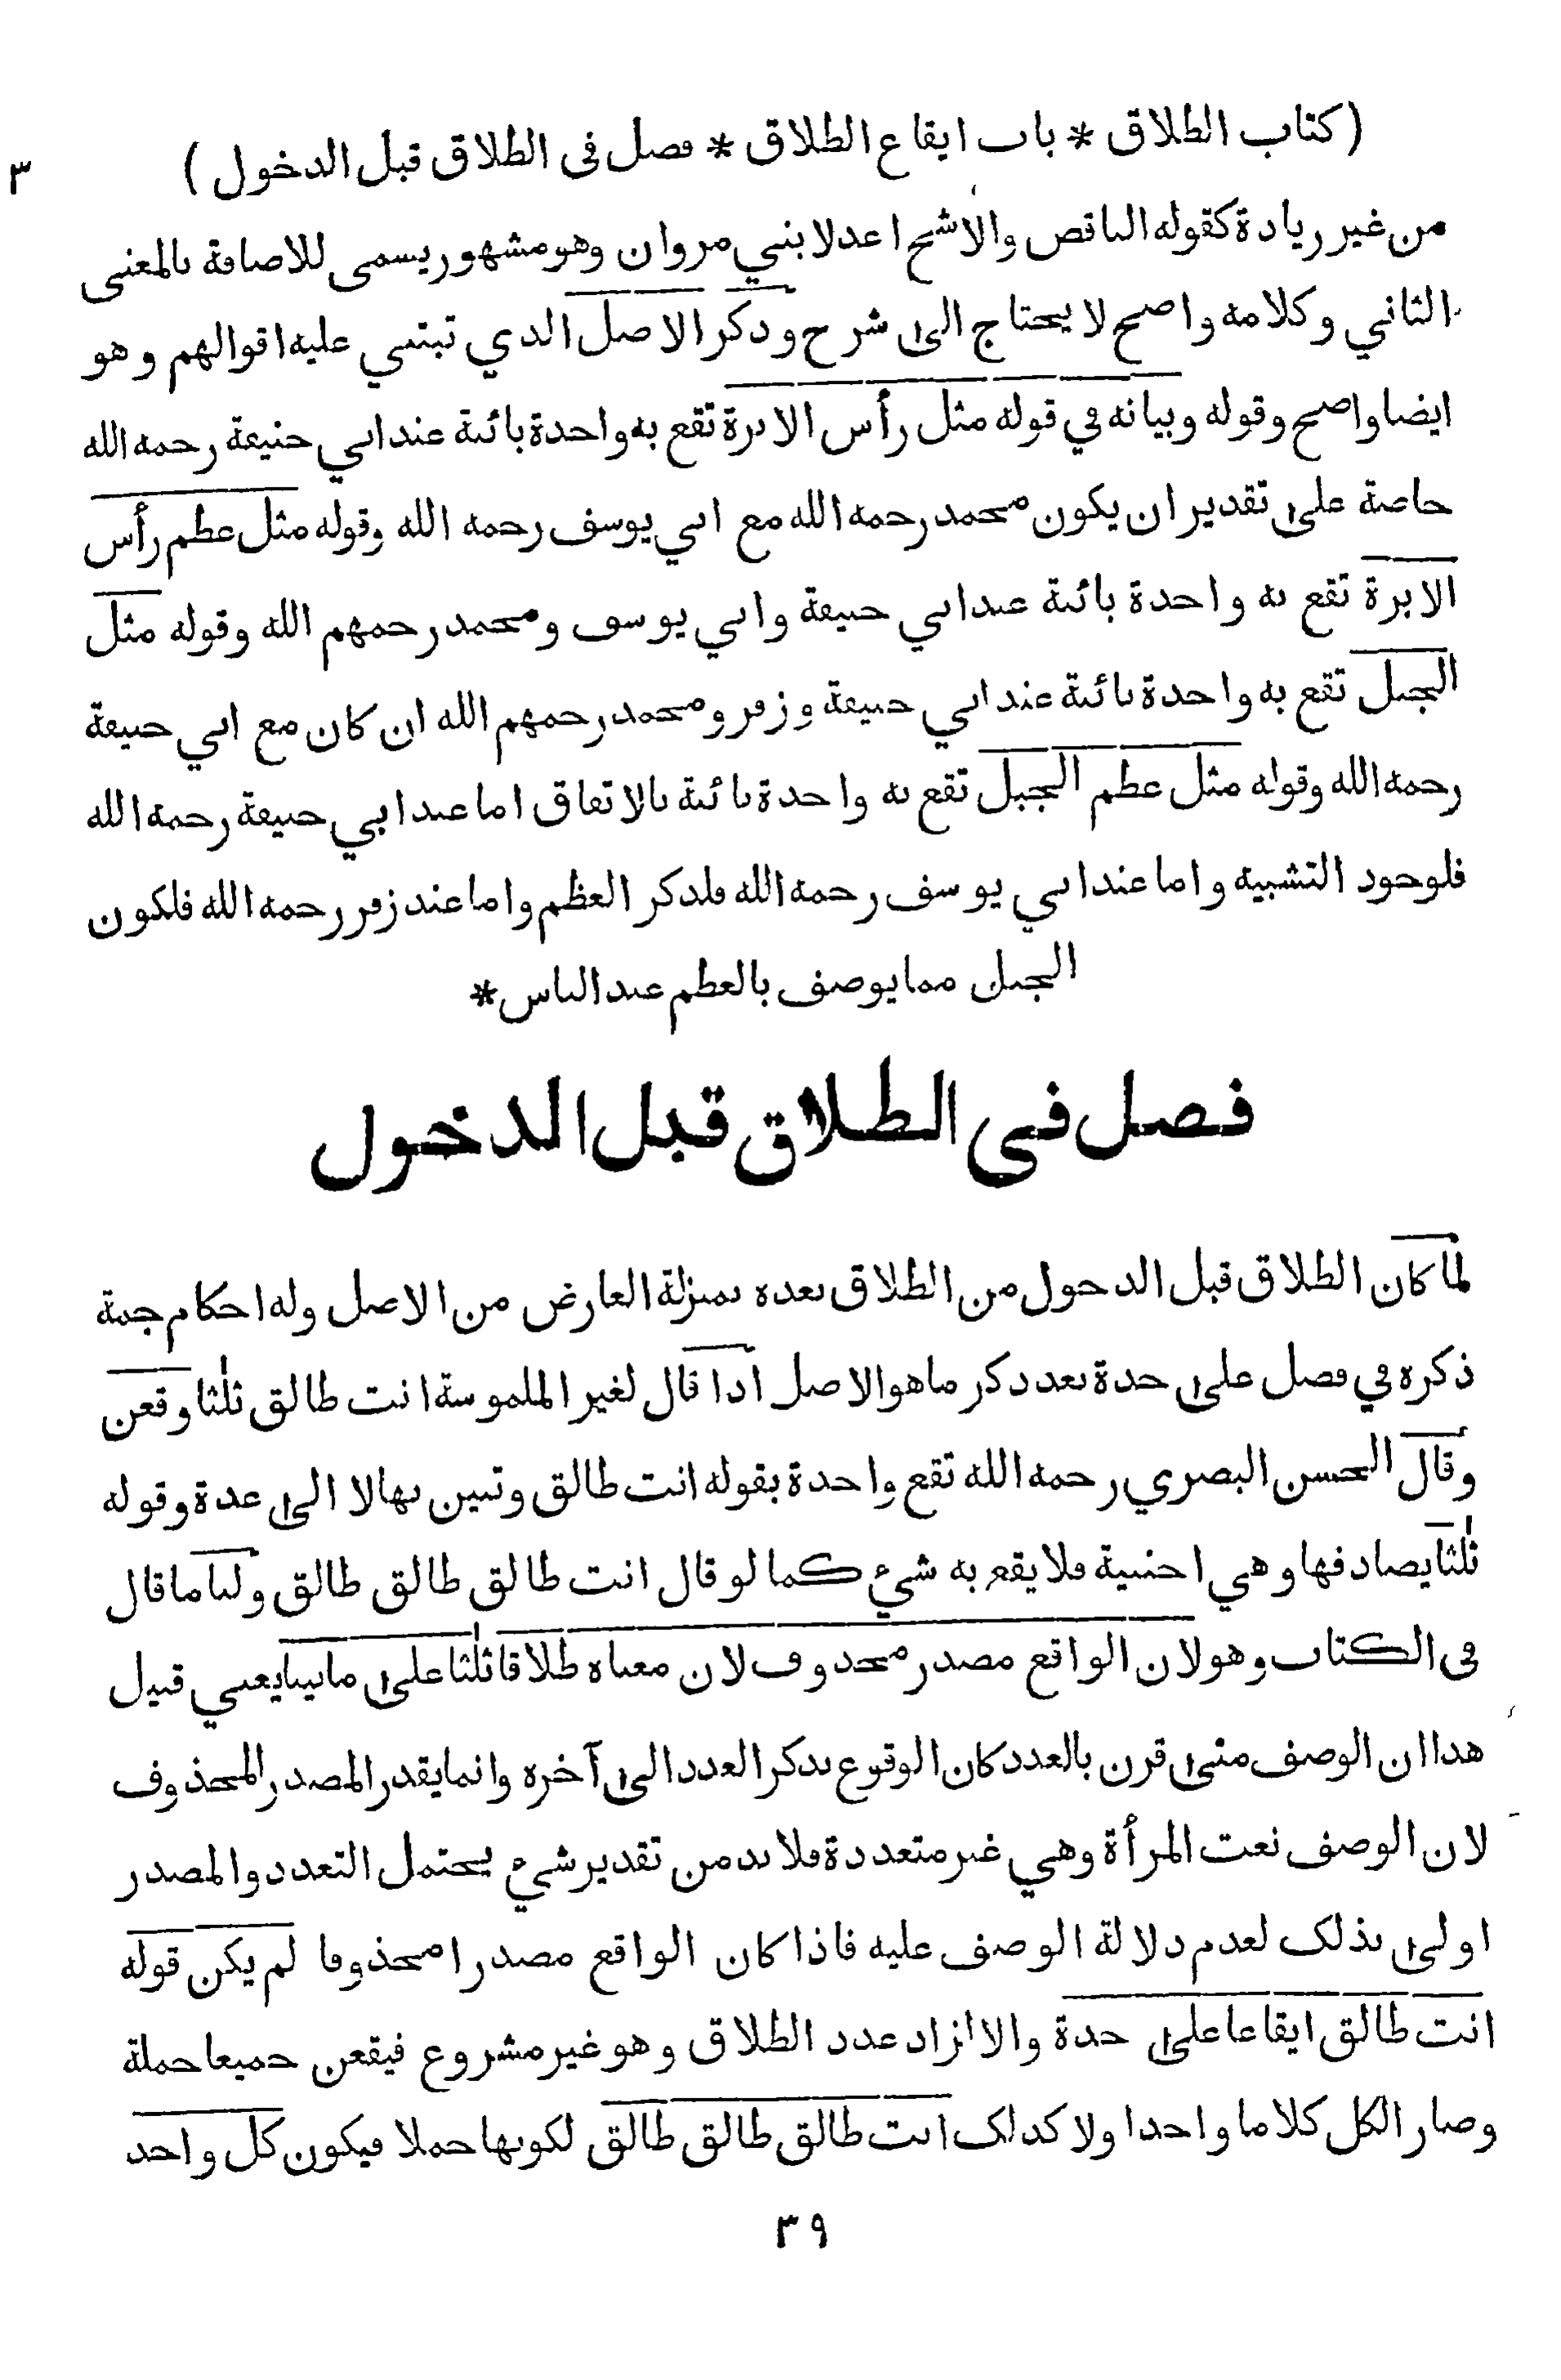 (كتاب الطلاق * باب ايقاع الطلاق * فصل فى الطلاق قبل الدخول) ٣
من غير زيادة كقوله الناقص والاشج اعدلا بني مروان وهو مشهور يسمى للاضافة بالمعنى
الثاني وكلامه واضح لا يحتاج الى شرح وذكر الاصل الذي تبتني عليه اقوالهم وهو
ايضا واضح وقوله وبيانه في قوله مثل رأس الابرة تقع به واحدة بائنة عند ابي حنيفة رحمه الله
خاصة على تقدير ان يكون محمد رحمه الله مع ابي يوسف رحمه الله وقوله مثل عظم رأس
الابرة تقع به واحدة بائنة عند ابي حنيفة وابي يوسف ومحمد رحمهم الله وقوله مثل
الجبل تقع به واحدة بائنة عند ابي حنيفة وزفر ومحمد رحمهم الله ان كان مع ابي حنيفة
رحمه الله وقوله مثل عظم الجبل تقع به واحدة بائنة بالاتفاق اما عند ابي حنيفة رحمه الله
فلوجود التشبيه واما عند ابي يوسف رحمه الله فلذكر العظم واما عند زفر رحمه الله فلكون
الجبل مما يوصف بالعظم عند الناس *
فصل فى الطلاق قبل الدخول
لما كان الطلاق قبل الدخول من الطلاق بعده بمنزلة العارض من الاصل وله احكام جمة
ذكره في فصل على حدة بعد ذكر ما هو الاصل اذا قال لغير الملموسة انت طالق ثلٰثا وقعن
وقال الحسن البصري رحمه الله تقع واحدة بقوله انت طالق وتبين بها لا الى عدة وقوله
ثلٰثا يصادفها وهي اجنبية فلا يقع به شيء كما لو قال انت طالق طالق طالق ولنا ما قال
فى الكتاب وهو لان الواقع مصدر محذوف لان معناه طلاقا ثلٰثا على ما بينا يعني قبيل
هذا ان الوصف متى قرن بالعدد كان الوقوع بذكر العدد الى آخره وانما يقدر المصدر المحذوف
لان الوصف نعت المرأة وهي غير متعددة فلا بد من تقدير شيء يحتمل التعدد والمصدر
اولى بذلك لعدم دلالة الوصف عليه فاذا كان الواقع مصدرا محذوفا لم يكن قوله
انت طالق ايقاعا على حدة والا لزاد عدد الطلاق وهو غير مشروع فيقعن جميعا جملة
وصار الكل كلاما واحدا ولا كذلك انت طالق طالق طالق لكونها جملا فيكون كل واحد
٣٩